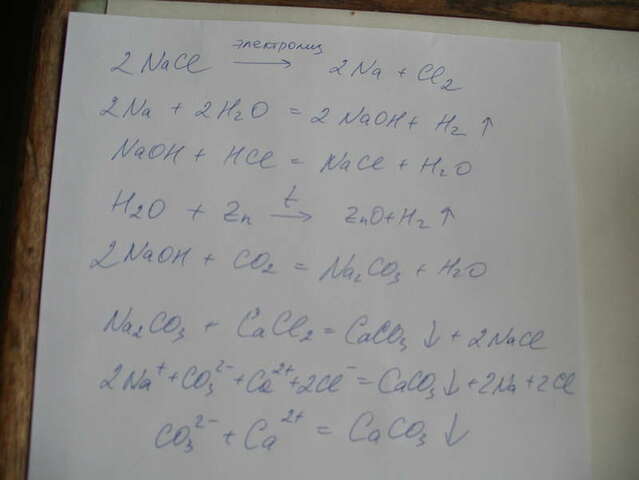 электролиз
2NaCl → 2Na + Cl₂
2Na + 2H₂O = 2NaOH + H₂ ↑
NaOH + HCl = NaCl + H₂O
H₂O + Zn →ᵗ ZnO + H₂ ↑
2NaOH + CO₂ = Na₂CO₃ + H₂O
Na₂CO₃ + CaCl₂ = CaCO₃ ↓ + 2NaCl
2Na⁺ + CO₃²⁻ + Ca²⁺ + 2Cl⁻ = CaCO₃ ↓ + 2Na + 2Cl
CO₃²⁻ + Ca²⁺ = CaCO₃ ↓